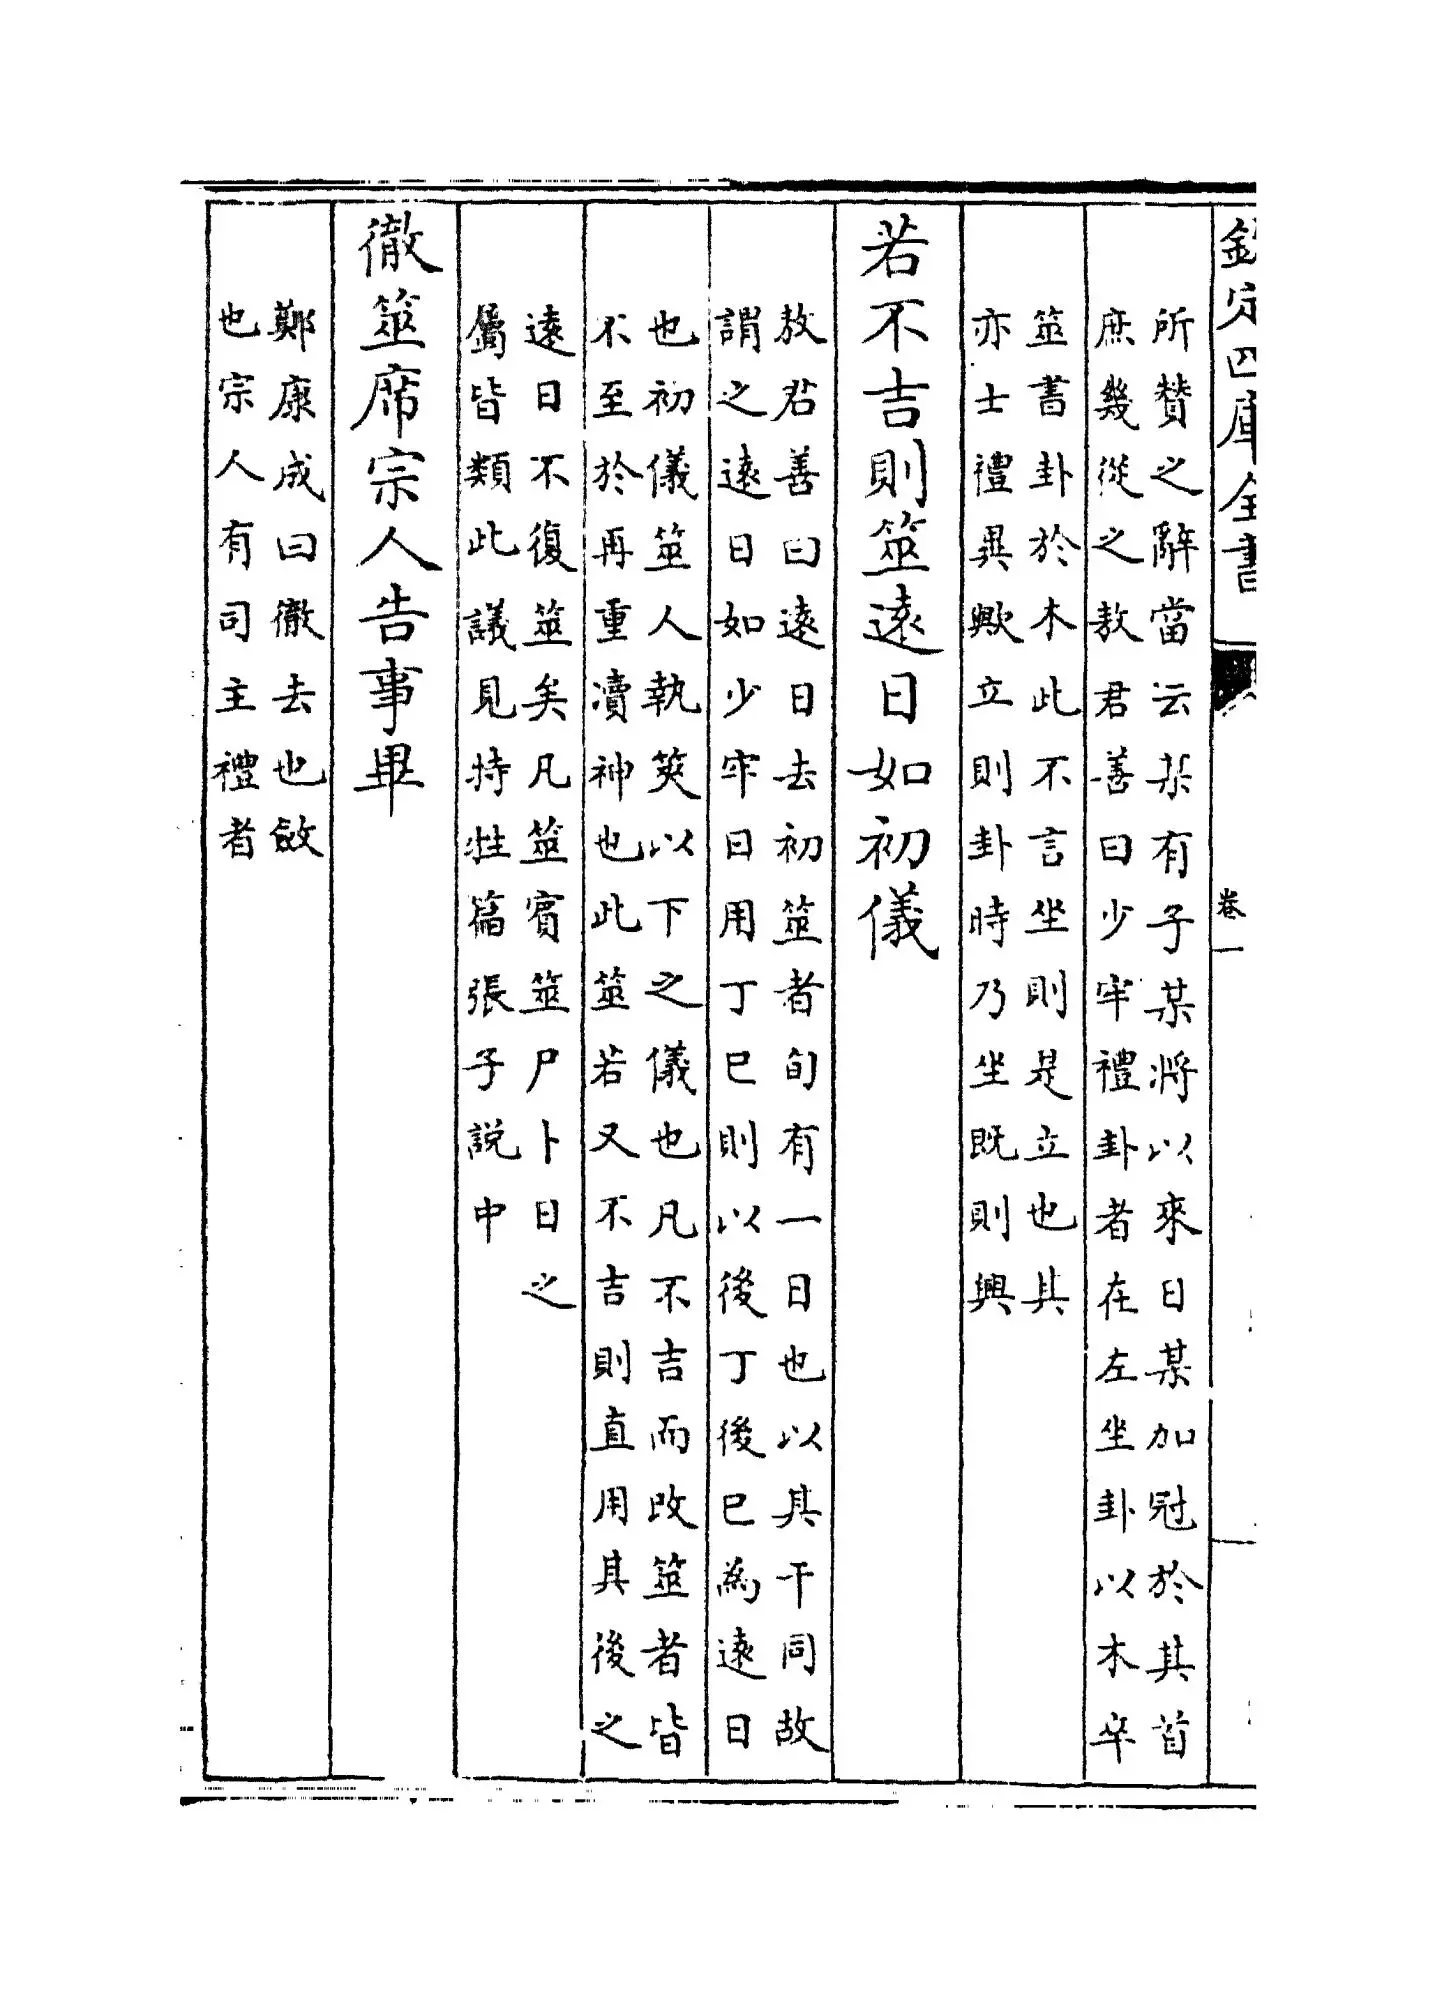 欽定四庫全書
卷一
所贊之辭當云某有子某將以來日某加冠於其首
庶幾從之敖君善曰少牢禮卦者在左坐卦以木卒
筮書卦於木此不言坐則是立也其
亦士禮異歟立則卦時乃坐既則興
若不吉則筮遠日如初儀
敖君善曰遠日去初筮者旬有一日也以其干同故
謂之遠日如少牢日用丁巳則以後丁後巳為遠日
也初儀筮人執筴以下之儀也凡不吉而改筮者皆
不至於再重瀆神也此筮若又不吉則直用其後之
遠日不復筮矣凡筮賓筮尸卜日之
屬皆類此議見特牲篇張子說中
徹筮席宗人告事畢
鄭康成曰徹去也斂
也宗人有司主禮者